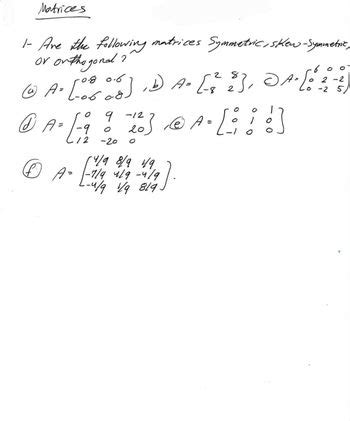 Matrices
1- Are the following matrices Symmetric, skew-Symmetric,
or orthogonal?
(a) A= [0.8 0.6; -0.6 0.8], (b) A= [2 8; -8 2], (c) A= [6 0 0; 0 2 -2; 0 -2 5]
(d) A= [0 9 -12; -9 0 20; 12 -20 0], (e) A= [0 0 1; 0 1 0; -1 0 0]
(f) A= [4/9 8/9 1/9; -7/9 4/9 -4/9; -4/9 1/9 8/9].